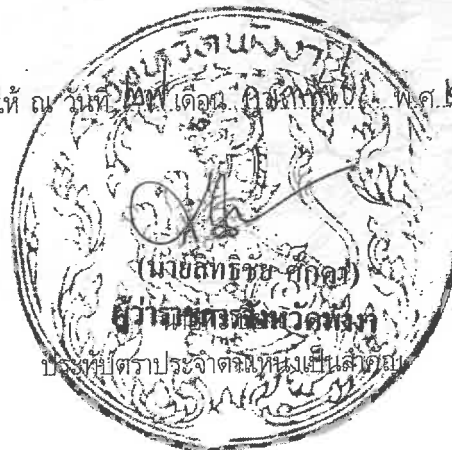 จังหวัดพังงา
ให้ ณ วันที่ เดือน กุมภาพันธ์ พ.ศ.
(นายสิทธิชัย ศักดา)
ผู้ว่าราชการจังหวัดพังงา
ประทับตราประจำตำแหน่งเป็นสำคัญ